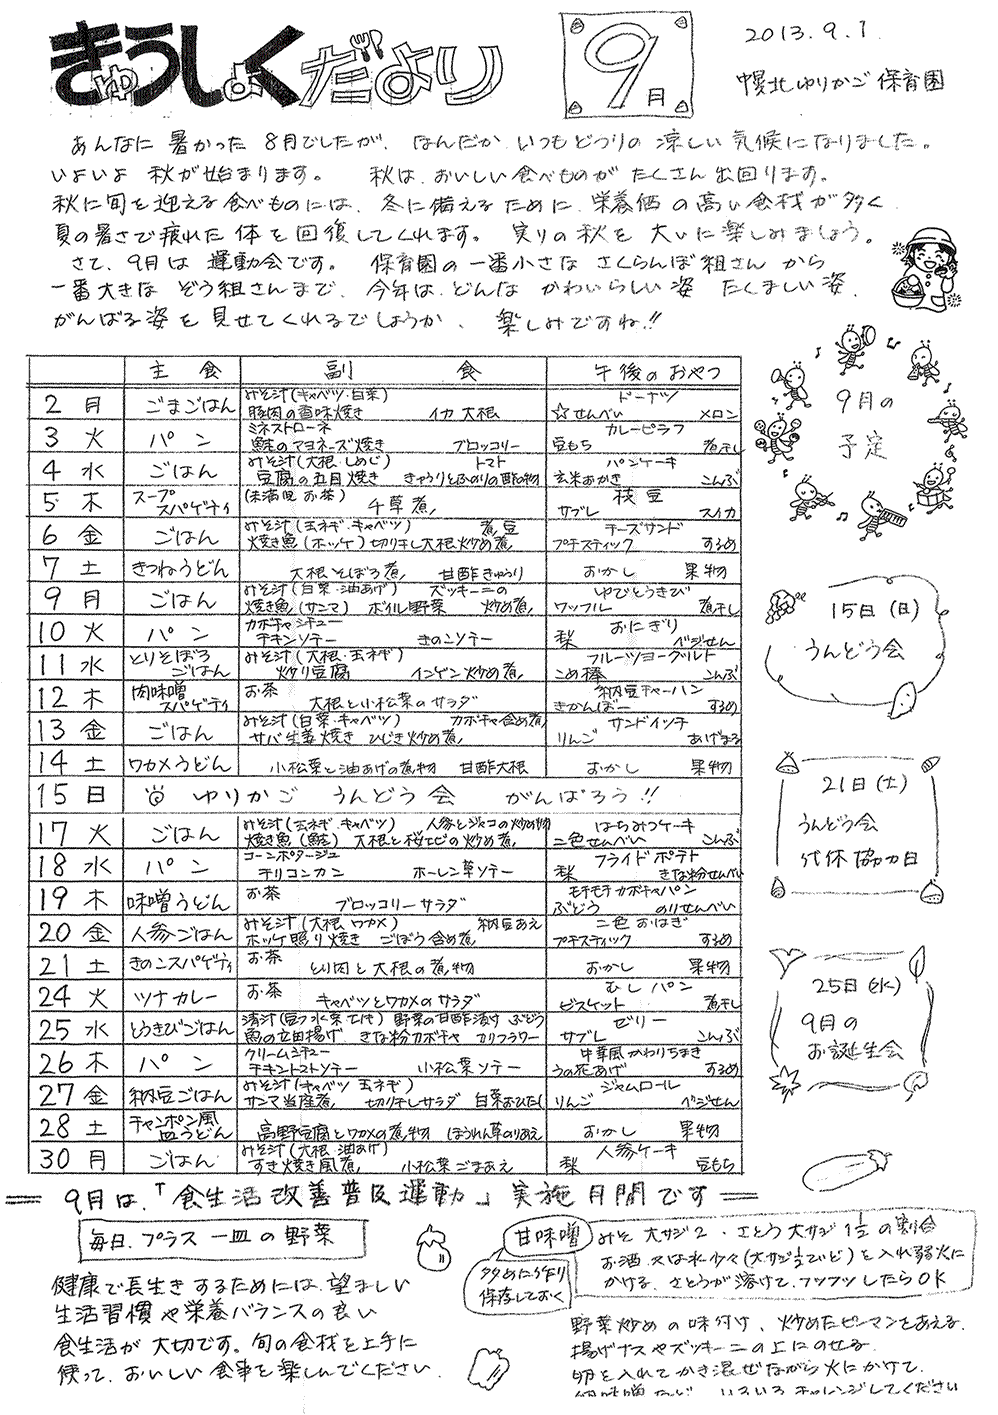 きゅうしょくだより
9月
2013.9.1.
幌北ゆりかご保育園
あんなに暑かった8月でしたが、なんだかいつもどうりの涼しい気候になりました。
いよいよ秋が始まります。 秋は、おいしい食べものがたくさん出回ります。
秋に旬を迎える食べものには、冬に備えるために、栄養価の高い食材が多く
夏の暑さで疲れた体を回復してくれます。 実りの秋を大いに楽しみましょう。
さて、9月は運動会です。 保育園の一番小さなさくらんぼ組さんから
一番大きなぞう組さんまで、今年は、どんなかわいらしい姿たくましい姿、
がんばる姿を見せてくれるでしょうか、楽しみですね!!
主食 副食 午後のおやつ
2 月 ごまごはん みそ汁(キャベツ・白菜) ドーナツ
豚肉の香味焼き イカ大根 ☆せんべい メロン
3 火 パン ミネストローネ カレーピラフ
鮭のマヨネーズ焼き ブロッコリー 豆もち 煮干し
4 水 ごはん みそ汁(大根・しめじ) トマト パンケーキ
豆腐の五目焼き きゅうりとふのりの酢の物 玄米おかき こんぶ
5 木 スープスパゲティ (未満児 お茶) 枝豆
千草煮 サブレ スイカ
6 金 ごはん みそ汁(玉ネギ・キャベツ) 煮豆 チーズサンド
焼き魚(ホッケ) 切り干し大根炒め煮 プチスティック するめ
7 土 きつねうどん 大根そぼろ煮 甘酢きゅうり おかし 果物
9 月 ごはん みそ汁(白菜・油あげ) ズッキーニの ゆでとうきび
焼き魚(サンマ) ボイル野菜 炒め煮 ワッフル 煮干し
10 火 パン カボチャシチュー おにぎり
チキンソテー きのこソテー 梨 ベジせん
11 水 とりそぼろごはん みそ汁(大根・玉ネギ) フルーツヨーグルト
炒り豆腐 インゲン炒め煮 こめ棒 こんぶ
12 木 肉味噌スパゲティ お茶 納豆チャーハン
大根と小松菜のサラダ きかんぼー するめ
13 金 ごはん みそ汁(白菜・キャベツ) カボチャ含め煮 サンドイッチ
サバ生姜焼き ひじき炒め煮 りんご あげまる
14 土 ワカメうどん 小松菜と油あげの煮物 甘酢大根 おかし 果物
15 日 ゆりかご うんどう会 がんばろう!!
17 火 ごはん みそ汁(玉ネギ・キャベツ) 人参とジャコの炒め物 はちみつケーキ
焼き魚(鮭) 大根と桜エビの炒め煮 二色せんべい こんぶ
18 水 パン コーンポタージュ フライドポテト
チリコンカン ホーレン草ソテー 梨 きな粉せんべい
19 木 味噌うどん お茶 モチモチカボチャパン
ブロッコリーサラダ ぶどう のりせんべい
20 金 人参ごはん みそ汁(大根、ワカメ) 納豆あえ 二色おはぎ
ホッケ照り焼き ごぼう含め煮 プチスティック するめ
21 土 きのこスパゲティ お茶
とり肉と大根の煮物 おかし 果物
24 火 ツナカレー お茶 むしパン
キャベツとワカメのサラダ ビスケット 煮干し
25 水 とうきびごはん 清汁 野菜の甘酢漬け ぶどう ゼリー
魚の立田揚げ きな粉カボチャ カリフラワー サブレ こんぶ
26 木 パン クリームシチュー 中華風かわりちまき
チキントマトソテー 小松菜ソテー うの花あげ するめ
27 金 納豆ごはん みそ汁(キャベツ 玉ネギ) ジャムロール
サンマ当座煮 切り干しサラダ 白菜おひたし りんご ベジせん
28 土 チャンポン風皿うどん 高野豆腐とワカメの煮物 ほうれん草のりあえ おかし 果物
30 月 ごはん みそ汁(大根・油あげ) 人参ケーキ
すき焼き風煮 小松菜ごまあえ 梨 豆もち
9月の
予定
15日(日)
うんどう会
21日(土)
うんどう会
代休協力日
25日(水)
9月の
お誕生会
9月は、「食生活改善普及運動」実施月間です
毎日、プラス一皿の野菜
健康で長生きするためには、望ましい
生活習慣や栄養バランスの良い
食生活が大切です。旬の食材を上手に
使って、おいしい食事を楽しんでください
甘味噌
多めに作り
保存しておく
みそ 大サジ2・さとう大サジ1½の割合
お酒又は水少々(大サジ½ていど)を入れ弱火に
かける、さとうが溶けて、フツフツしたらOK
野菜炒めの味付け、炒めたピーマンとあえる、
揚げナスやズッキーニの上にのせる、
卵を入れてかき混ぜながら火にかけて、
卵味噌など、いろいろチャレンジしてください